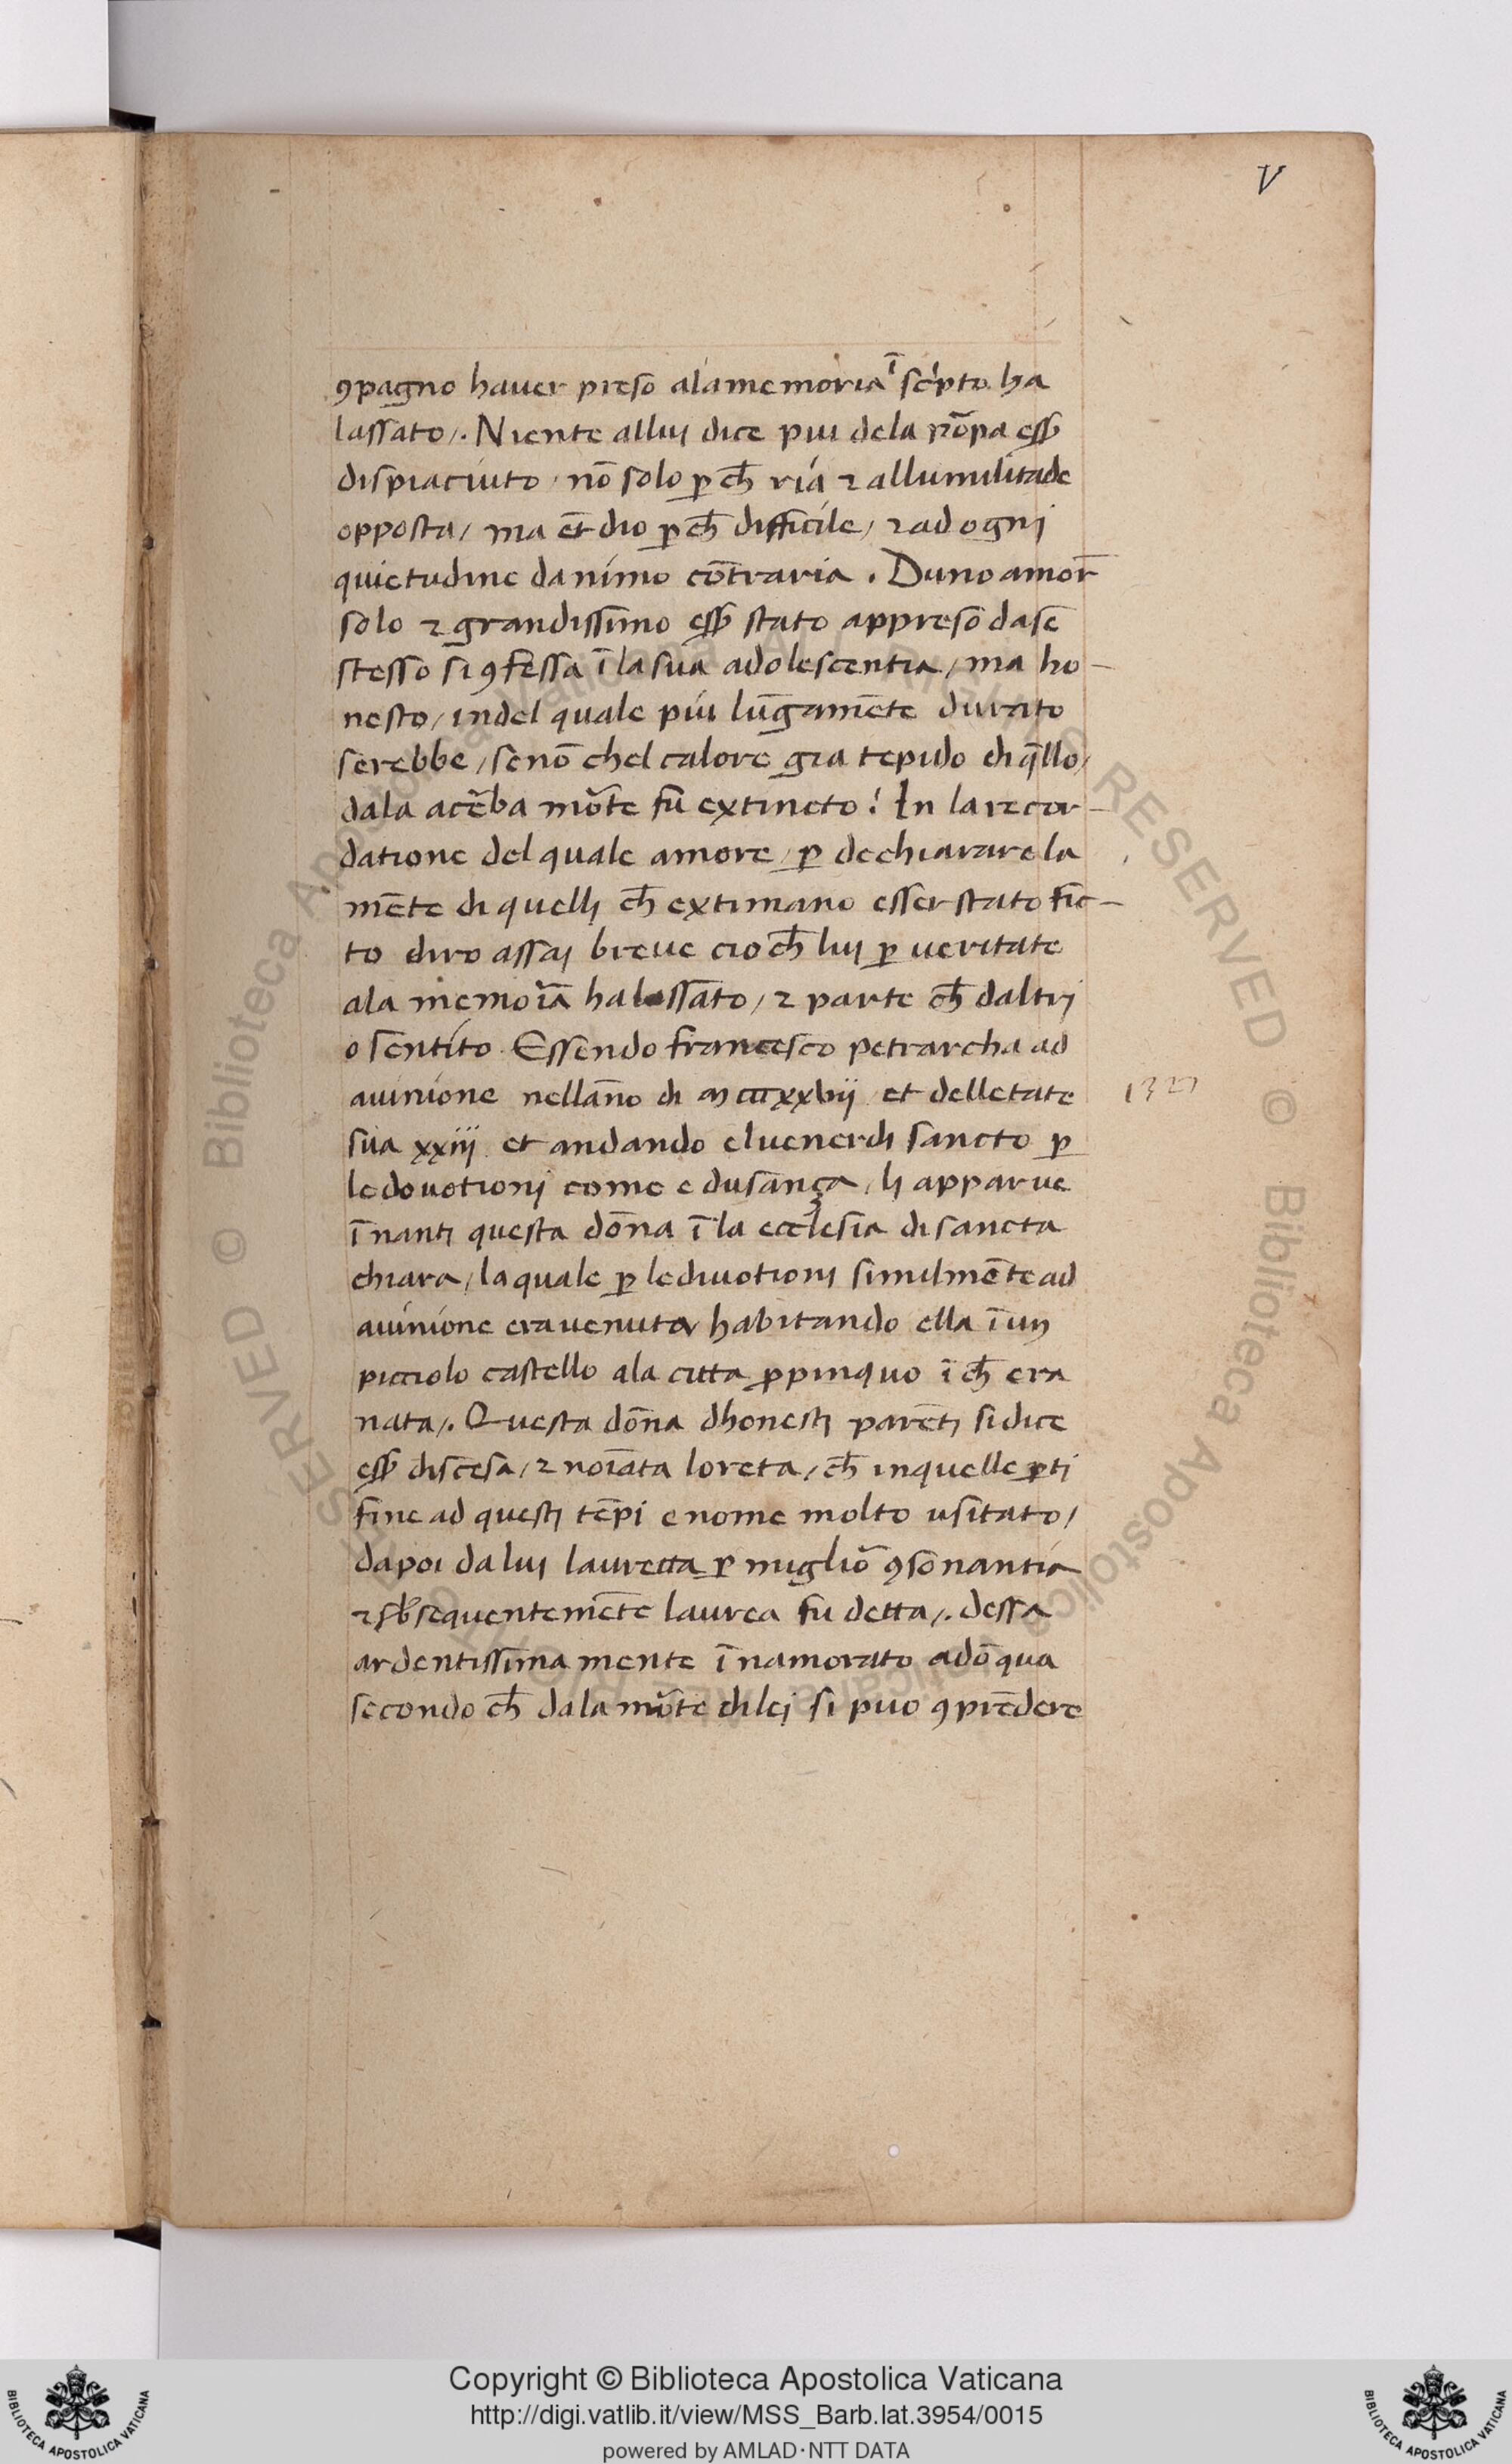 V
ꝯpagno hauer preso alamemoria ī sc'pto ha
lassato/. Niente alluj dice piu dela põpa eẞ
dispiaciuto / nō solo ꝑ cħ ria ⁊ allumilitade
opposta / ma et̄ dio ꝑ cħ difficile / ⁊ ad ognj
quietudine danimo cōtraria . Duno amor̄
solo ⁊ grandissimo eẞ stato appreso dase
stesso si ꝯfessa ī la sua adolescentia / ma ho-
nesto / indel quale piu lūgamēte durato
serebbe / senō chel calore gia tepido di q̄llo /
dala acẽba mõte fu extincto ! In la recor-
datione del quale amore / ꝑ dechiarare la
mēte di quellj cħ extimano esser stato fic-
to diro assaj breue cio cħ luj ꝑ ueritate
ala memoĩa ha lassato / ⁊ parte cħ daltrj
o sentito . Essendo francesco petrarcha ad
auinione nellāno di mcccxxvij et delletate
1327
sua xxiij et andando eluenerdi sancto ꝑ
le deuotionj come e dusança / li apparue
īnantj questa dōna ī la ecclesia di sancta
chiara / la quale ꝑ le diuotionj similmēte ad
auinione era uenuta habitando ella ī un
picciolo castello ala citta ꝓpinquo ī cħ era
nata/. Questa dōna dhonestj parētj si dice
eẞ discesa / ⁊ noīata loreta / cħ in quelle ꝑti
fine ad questj tēpi e nome molto usitato /
dapoi da luj lauretta ꝑ migliõ ꝯsonantia
⁊ sb̄sequentemēte laurea fu detta/. dessa
ardentissima mente īnamorato adōqua
secondo cħ dala mõte di lej si puo ꝯprēdere
SERVED © Biblioteca Apostolica Vaticana
RESERVED © Biblioteca Apostolica Vaticana
Copyright © Biblioteca Apostolica Vaticana
http://digi.vatlib.it/view/MSS_Barb.lat.3954/0015
powered by AMLAD·NTT DATA
BIBLIOTECA APOSTOLICA VATICANA
BIBLIOTECA APOSTOLICA VATICANA